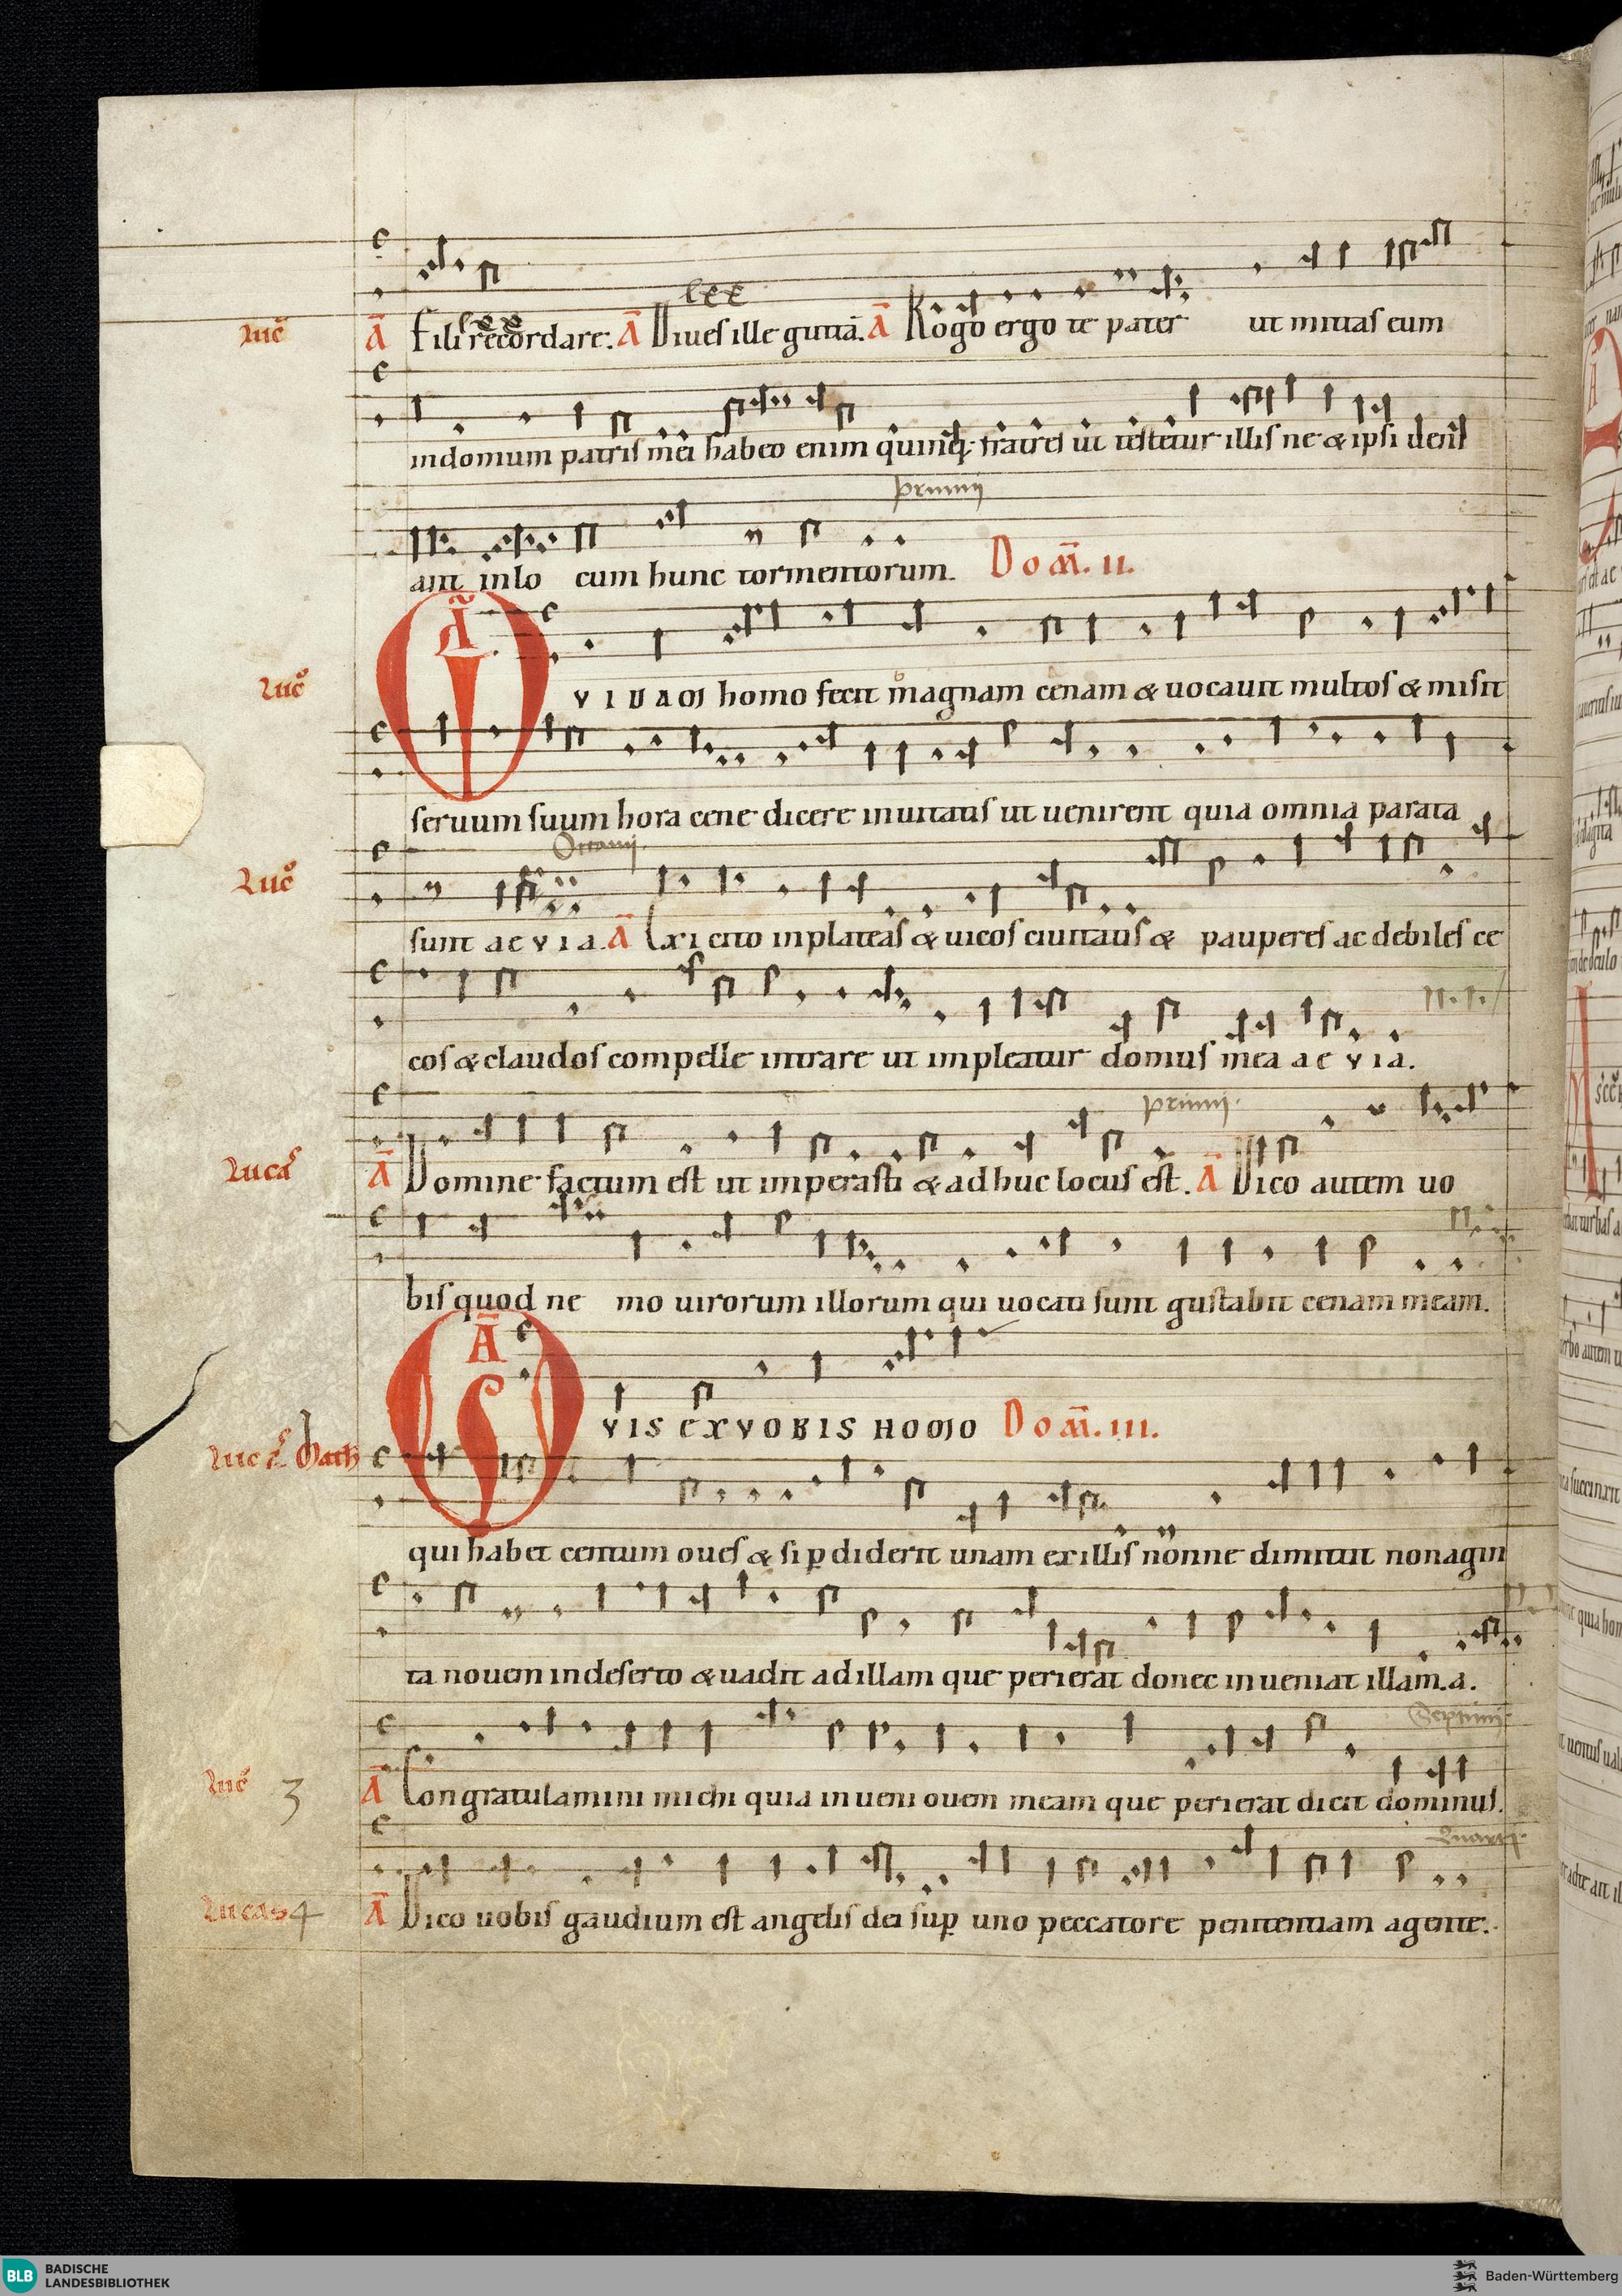 Luc̄ A̅ Fili recordare. A̅ Dives ille guttā. A̅ Rogo ergo te pater ut mittas eum
in domum patris mei habeo enim quinq; fratres ut testetur illis ne & ipsi deni
primi
ant in lo cum hunc tormentorum. Dom̄. II.
Luc̄ A̅ VIDAM homo fecit magnam cenam & uocauit multos & misit
seruum suum hora cene dicere inuitatis ut uenirent quia omnia parata
Octaui
Luc̄ sunt aevia. A̅ Exi cito in plateas & uicos ciuitatis & pauperes ac debiles ce
cos & claudos compelle intrare ut impleatur domus mea aevia.
primi
Lucas A̅ Domine factum est ut imperasti & adhuc locus est. A̅ Dico autem uo
bis quod ne mo uirorum illorum qui uocati sunt gustabit cenam meam.
A̅ VIS EX VOBIS HOMO Dom̄. III.
Luc̄ Math
qui habet centum oues & si p̱diderit unam ex illis nonne dimittit nonagin
ta nouem in deserto & uadit ad illam que perierat donec inueniat illam. a.
Septimi
Luc̄ 3 A̅ Congratulamini michi quia inueni ouem meam que perierat dicit dominus.
Quarti
Lucas 4 A̅ Dico uobis gaudium est angelis dei sup̱ uno peccatore penitentiam agente.
BLB BADISCHE LANDESBIBLIOTHEK
Baden-Württemberg